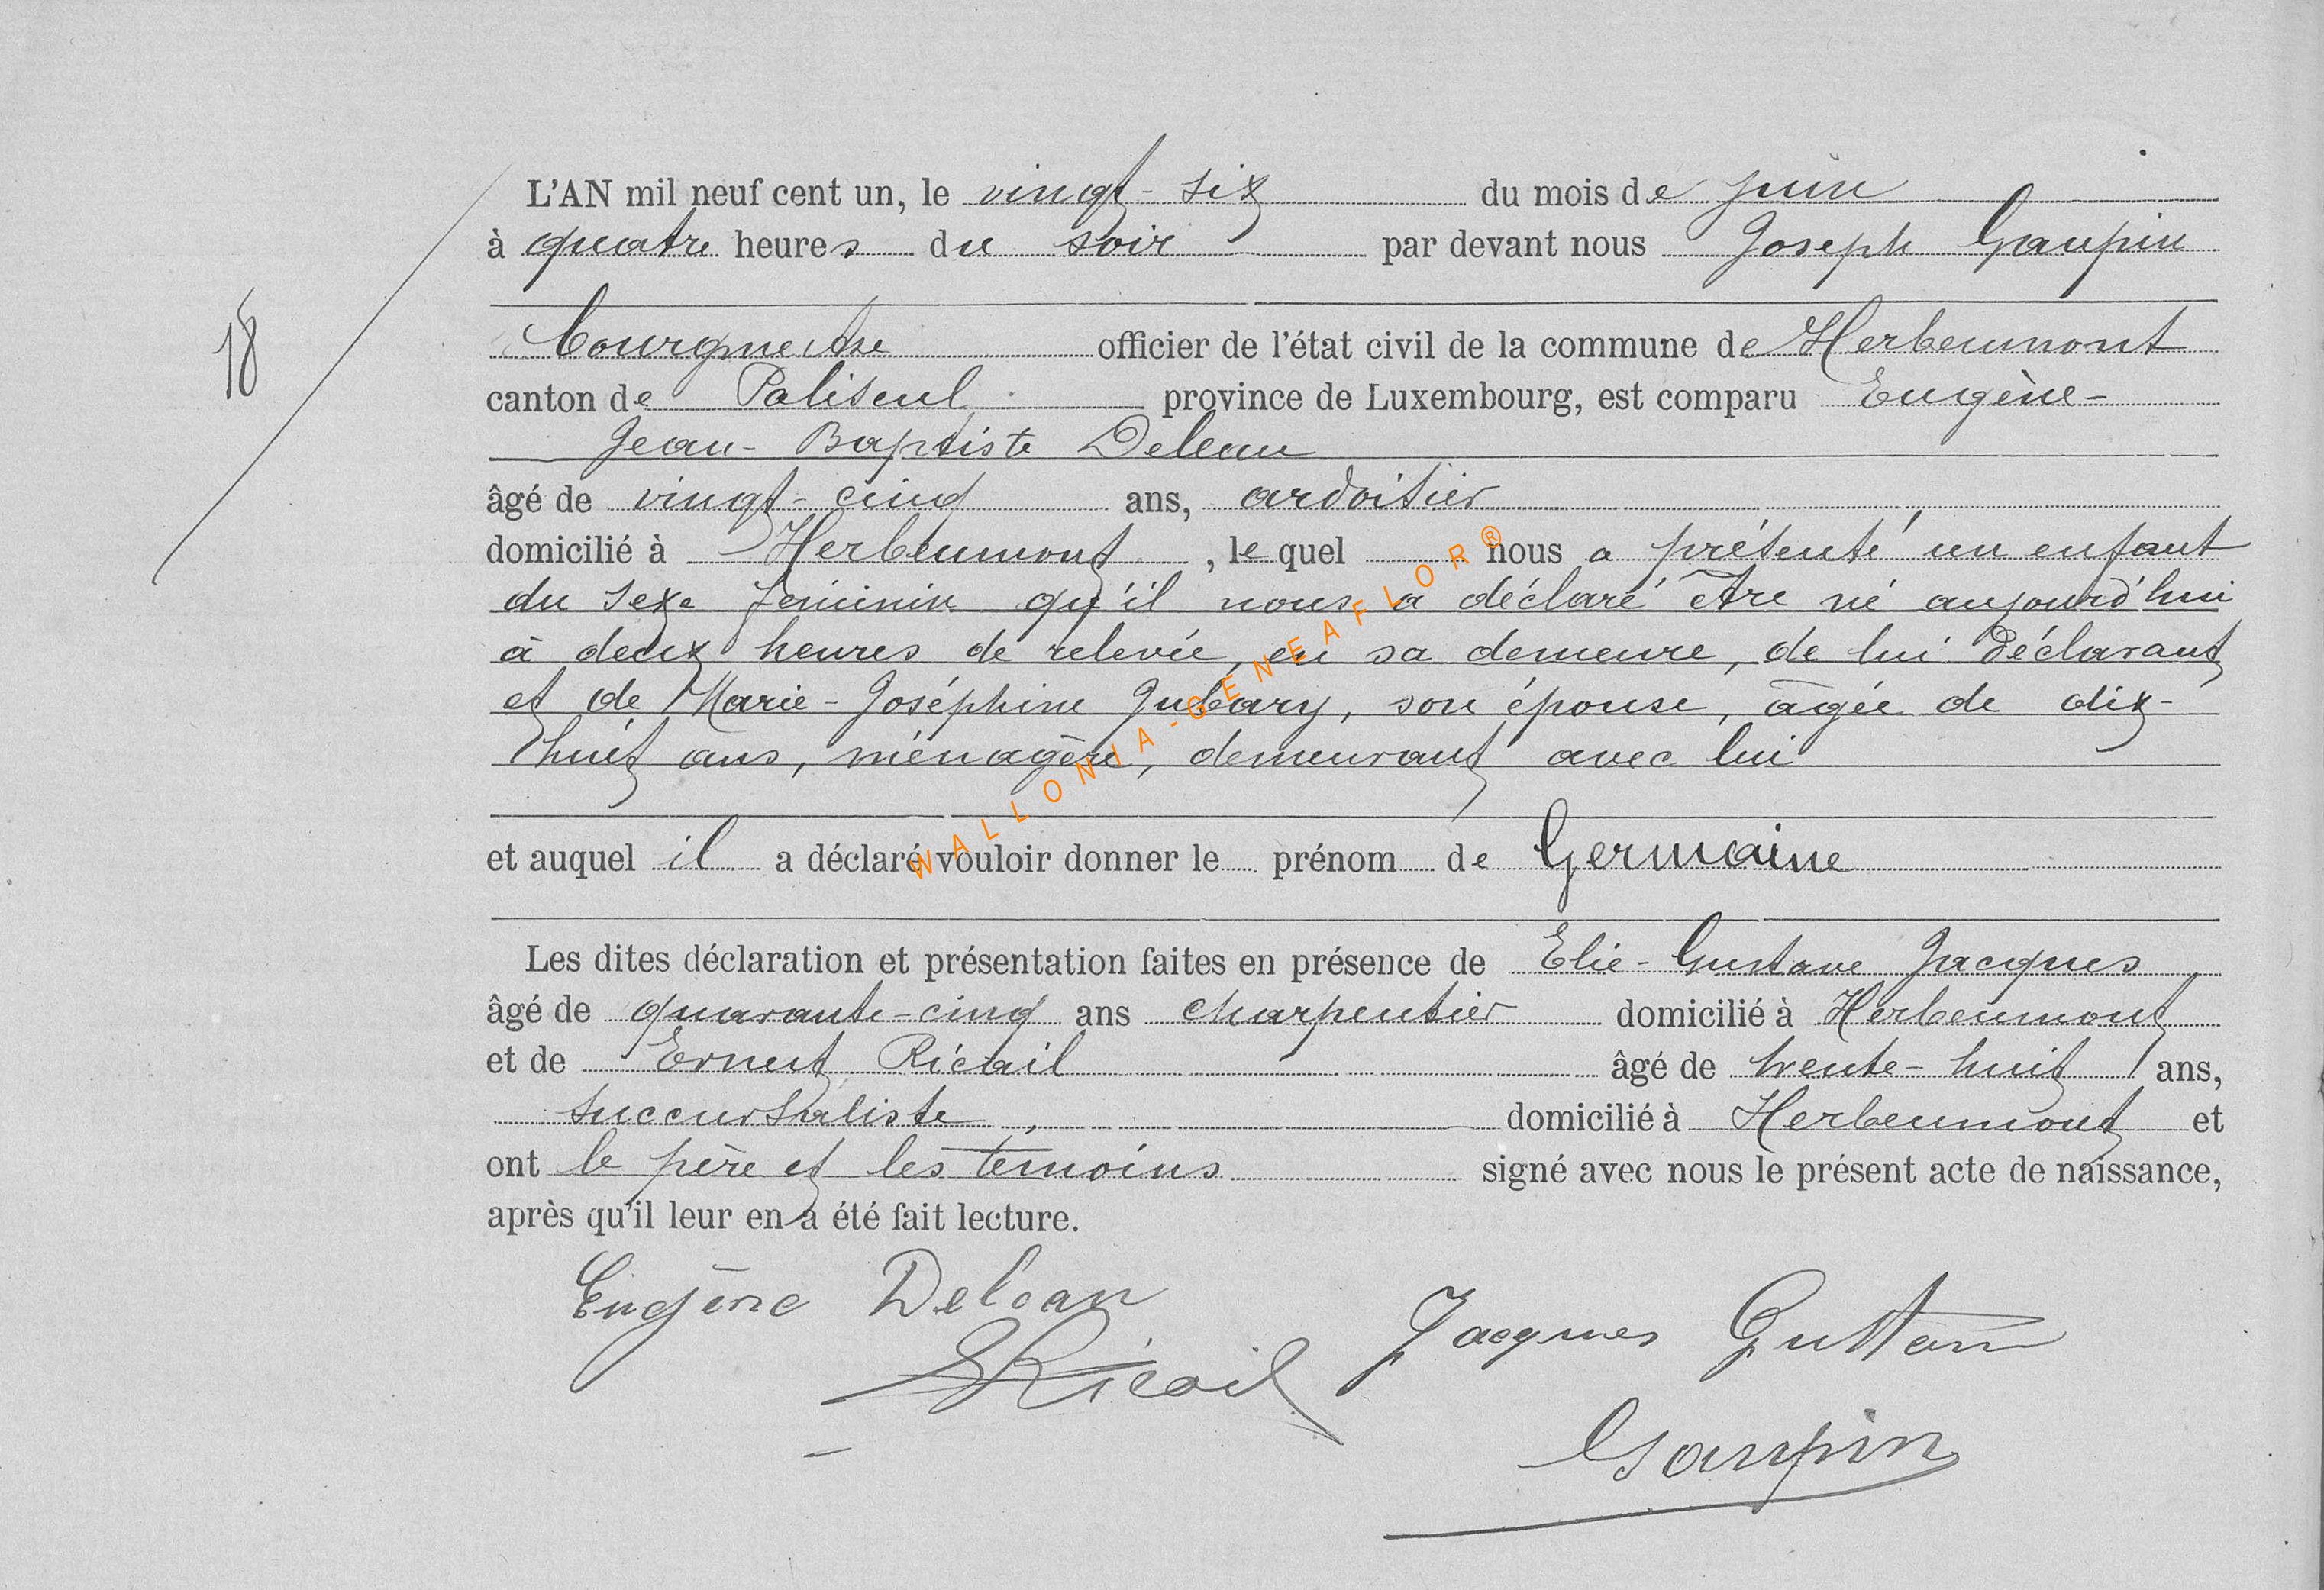 L'AN mil neuf cent un, le vingt-six du mois de juin
à quatre heures du soir par devant nous Joseph Gaupin
18
Bourgmestre officier de l'état civil de la commune de Herbeumont
canton de Paliseul province de Luxembourg, est comparu Eugène-
Jean-Baptiste Deleau
âgé de vingt-cinq ans, ardoisier,
domicilié à Herbeumont, lequel nous a présenté un enfant
du sexe féminin qu'il nous a déclaré être né aujourd'hui
à deux heures de relevée, en sa demeure, de lui déclarant
et de Marie-Joséphine Jubary, son épouse, âgée de dix-
huit ans, ménagère, demeurant avec lui
et auquel il a déclaré vouloir donner le prénom de Germaine
Les dites déclaration et présentation faites en présence de Elie-Gustave Jacques
âgé de quarante-cinq ans charpentier domicilié à Herbeumont
et de Ernest Ricail âgé de trente-huit ans,
succursaliste, domicilié à Herbeumont et
ont le père et les témoins signé avec nous le présent acte de naissance,
après qu'il leur en a été fait lecture.
Eugène Deleau
Jacques Gustave
ERicail
Gaupin
WALLONIA-GENEAFLOR®